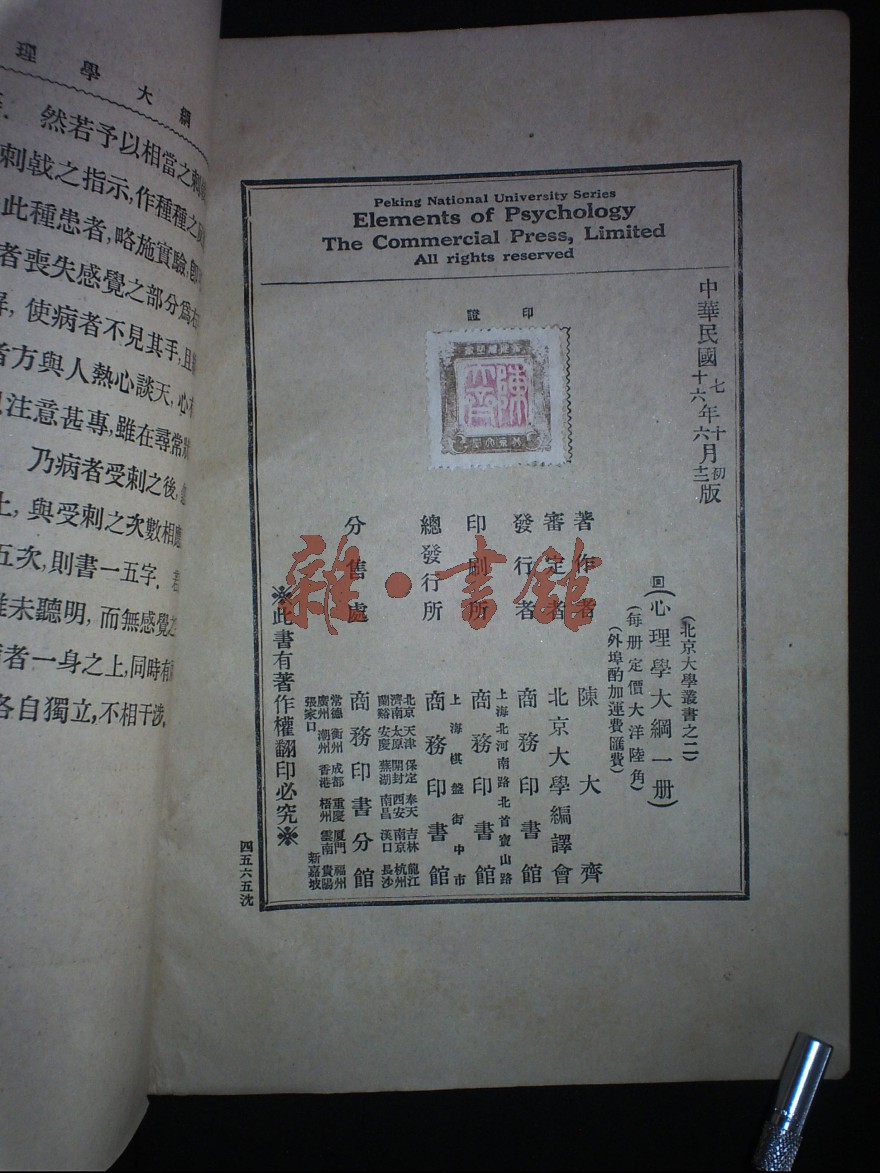 理學大綱
然若予以相當之刺
刺戟之指示,作種種之
此種患者,略施實驗,
者喪失感覺之部分爲
使病者不見其手,且
者方與人熱心談天,心
注意甚專,雖在尋常
乃病者受刺之後,
上,與受刺之次數相應
五次,則書一五字.
未聽明,而無感覺之
者一身之上,同時有
各自獨立,不相干涉.
Peking National University Series
Elements of Psychology
The Commercial Press, Limited
All rights reserved
印證
陳大齊
中華民國七年十月初版
十六年六月十二版
(北京大學叢書之二)
回(心理學大綱一册)
(每册定價大洋陸角)
(外埠酌加運費匯費)
著作者 陳大齊
審定者 北京大學編譯會
發行者 商務印書館
上海北河南路北首寶山路
印刷所 商務印書館
上海棋盤街中市
總發行所 商務印書館
北京 天津 保定 奉天 吉林 龍江
濟南 太原 開封 西安 南京 杭州
蘭谿 安慶 蕪湖 南昌 漢口 長沙
分售處 商務印書分館
常德 衡州 成都 重慶 厦門 福州
廣州 潮州 香港 梧州 雲南 貴陽
張家口 新嘉坡
※此書有著作權翻印必究※
四五六五沈
雜·書館